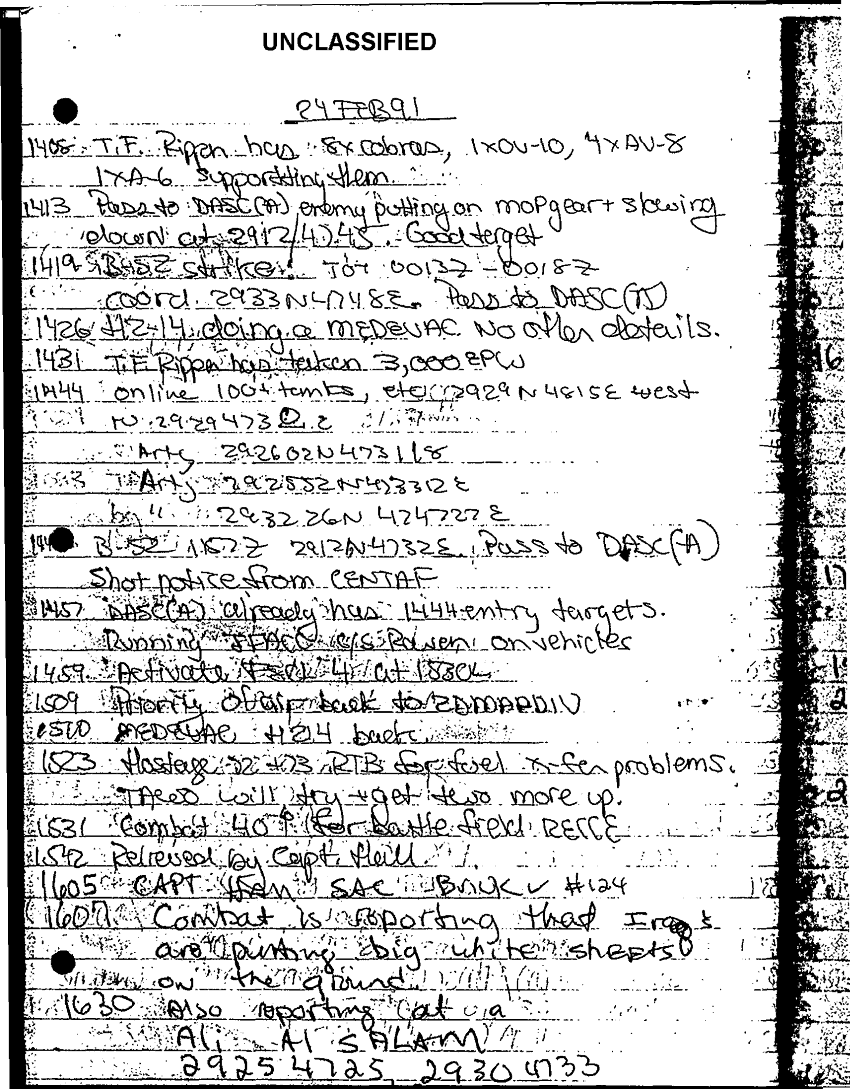 UNCLASSIFIED
24FEB91
1408 T.F. Rippen has 8x cobras, 1xOV-10, 4xAV-8
1xA-6 supportting them.
1413 Pass to DASC(A) enemy putting on mopgear + slowing
down at 2912/4745. Good target
1419 B-52 strike. TOT 0013Z-0018Z
coord. 2933N4748E. Pass to DASC(A)
1426 HZ-14 doing a MEDEVAC No other details.
1431 T.F. Rippen has taken 3,000 EPW
1444 online 100+ tanks, etc. 2929N 4815E west
to 2929473
Arty 292602N4731
Arty 292552N473312E
2932 26N 474727E
B-52 1157Z 2912N4732E. Pass to DASC(A)
Shot notice from CENTAF
1457 DASC(A) already has 1444 entry targets.
Running on vehicles
1459 Activate at 1530L
1509 Priority of air back to 2DMARDIV
1510 MEDEVAC HZ14 back.
1523 Hostage 32 +73 RTB for fuel x-fer problems.
TACC will try + get two more up.
1531 Combat 40 for battle field RECCE
1542 Relieved by Capt. Hill
1605 CAPT SAC #124
1607 Combat is reporting that Iraqi's
are putting big white sheets
on the ground
1630 Also reporting at a
Ali Al SALAM
2925 4725, 2930 4733